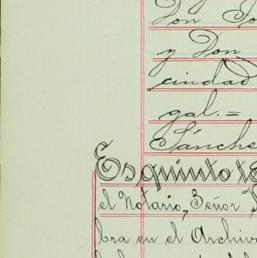 Don
y Don
ciudad
gal.=
Sánche
Es quinto te
el Notario, Señor
bra en el Archivo